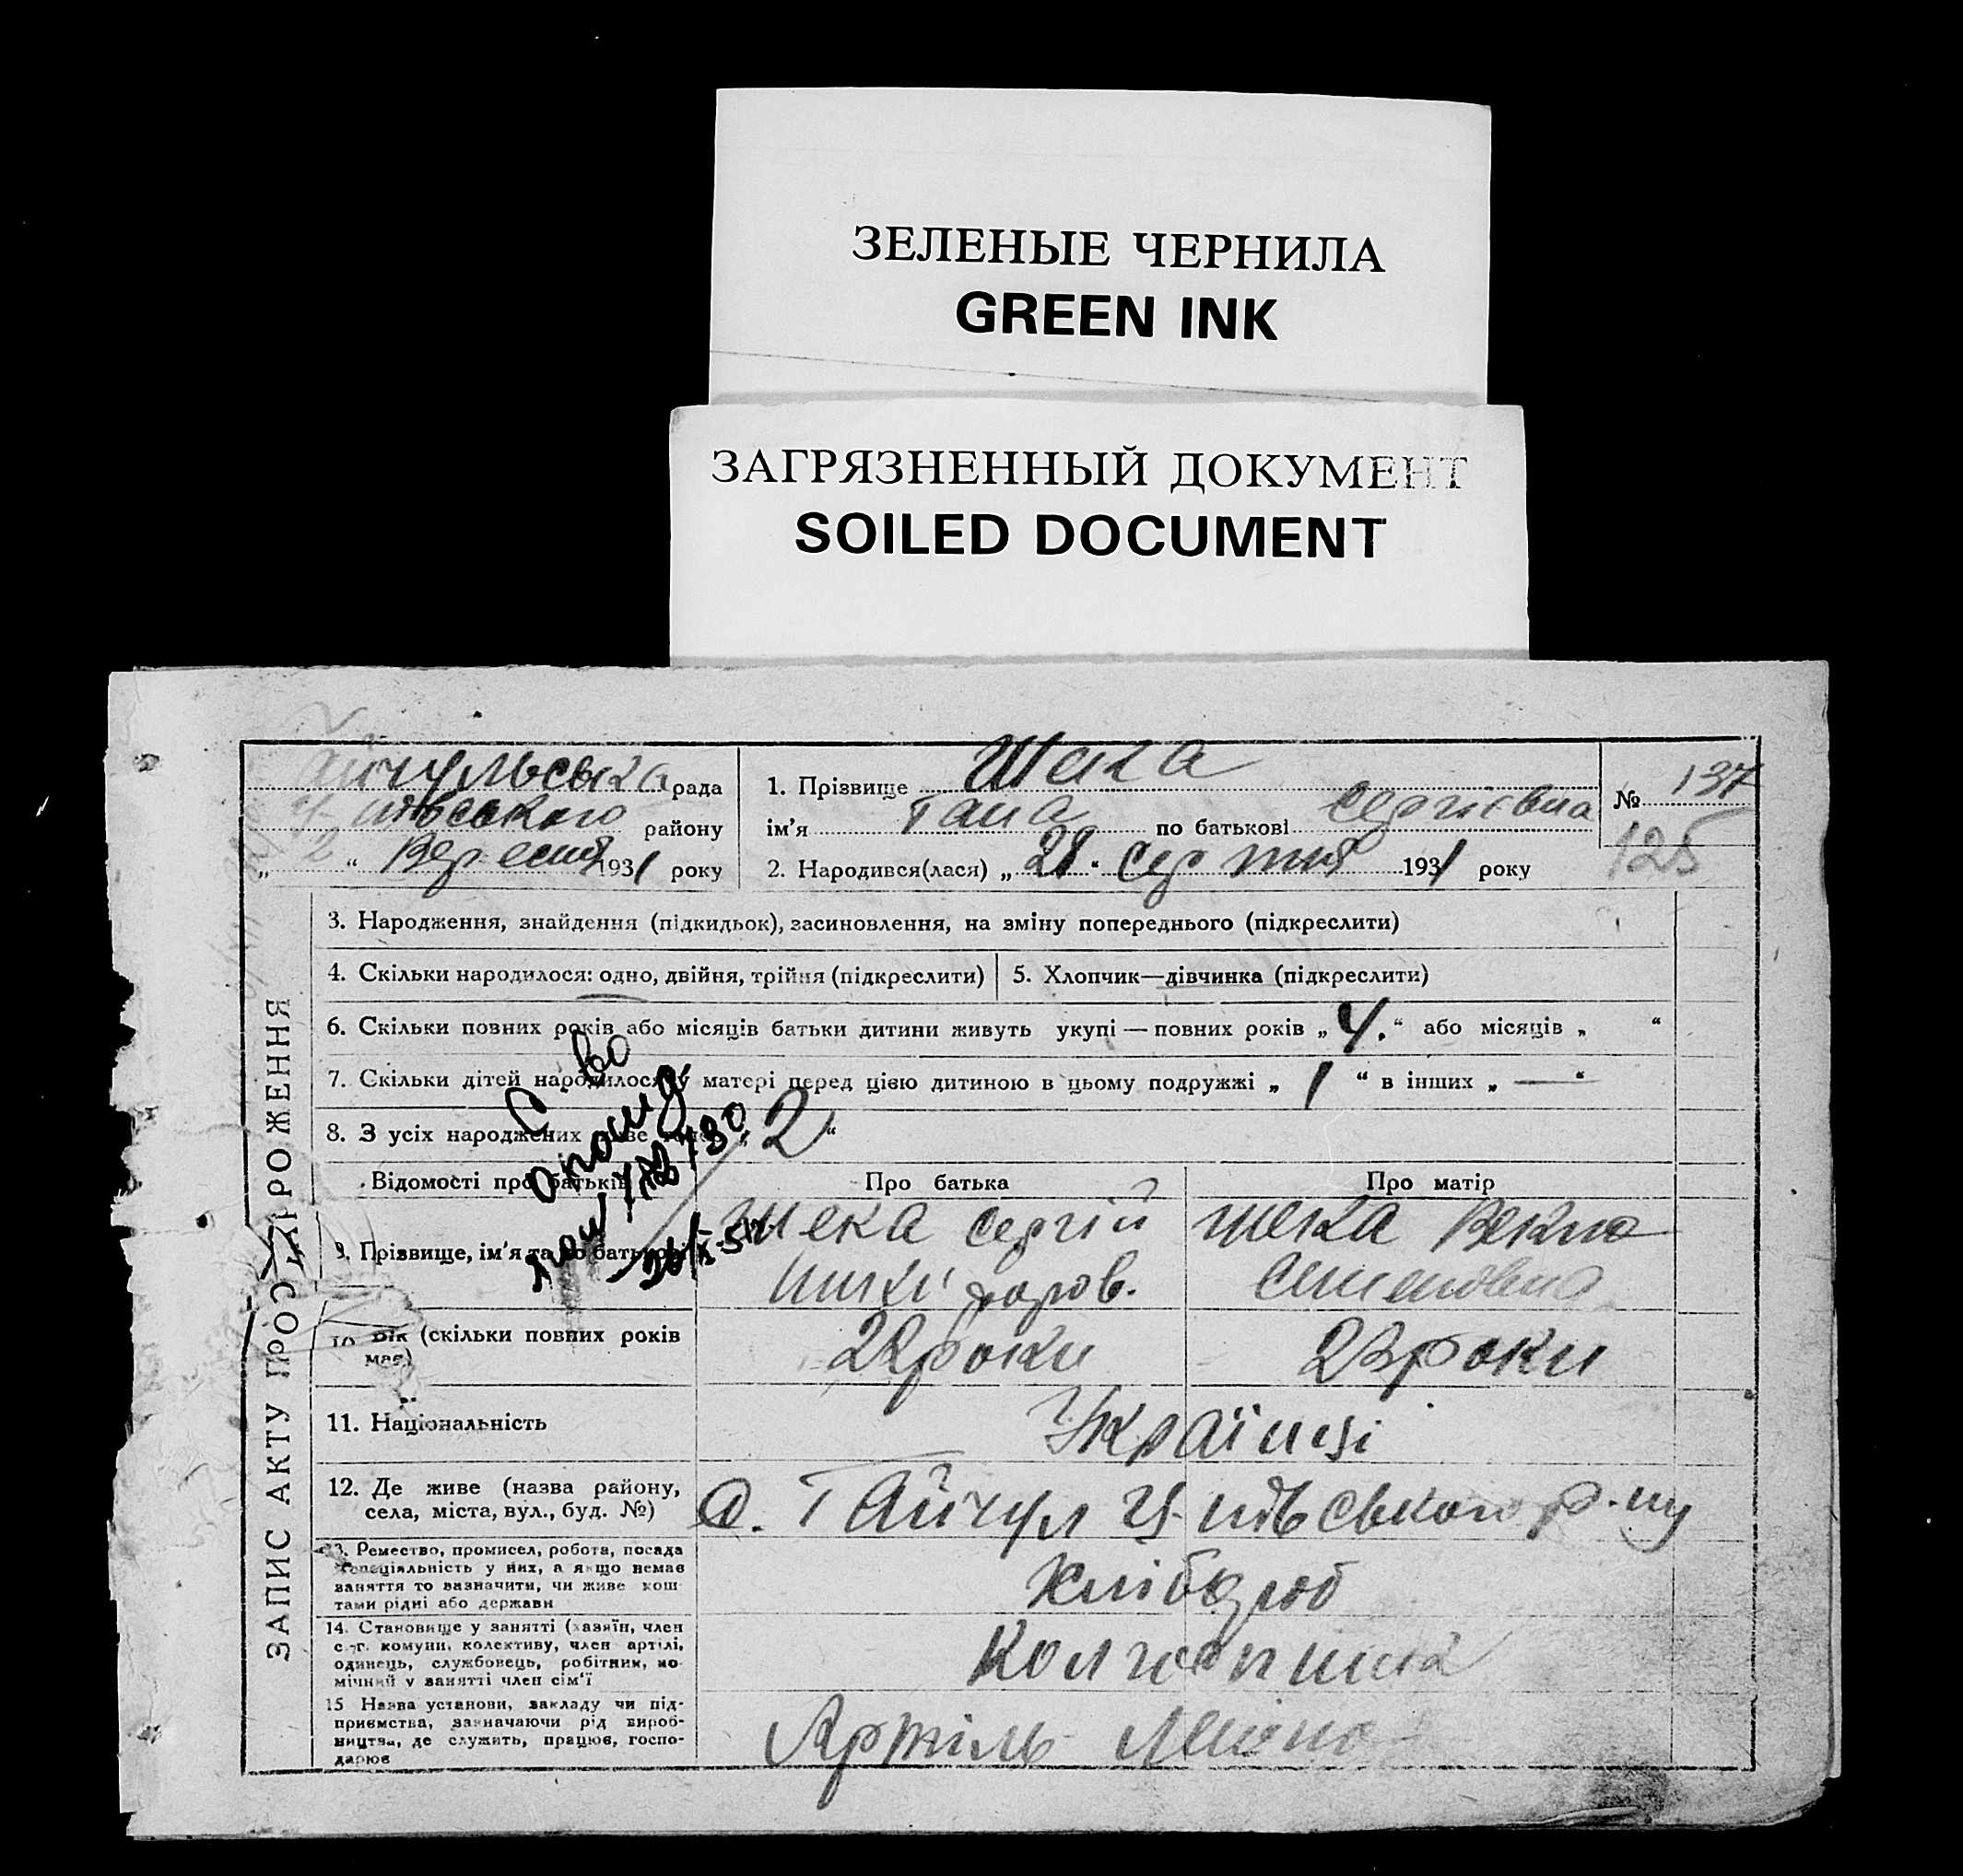 ЗЕЛЕНЫЕ ЧЕРНИЛА
GREEN INK
ЗАГРЯЗНЕННЫЙ ДОКУМЕНТ
SOILED DOCUMENT
ЗАПИС АКТУ ПРО НАРОЖЕННЯ
рада
району
„ 2 “ Вересня 1931 року
1. Прізвище Шека
ім'я Гана по батькові Сергієвна
2. Народився(лася) „ 28 “ серпня 1931 року
№ 137
125
3. Народження, знайдення (підкидьок), засиновлення, на зміну попереднього (підкреслити)
4. Скільки народилося: одно, двійня, трійня (підкреслити)
5. Хлопчик—дівчинка (підкреслити)
6. Скільки повних років або місяців батьки дитини живуть укупі — повних років „ 4. “ або місяців „ “
7. Скільки дітей народилося у матері перед цією дитиною в цьому подружжі „ 1 “ в інших „ — “
8. З усіх народжених „ 2 “
Відомості про батьків
Про батька
Про матір
9. Прізвище, ім'я та по батькові
Шека Сергій
Шека
Семеновна
10. Вік (скільки повних років має)
22 роки
23 роки
11. Національність
Українці
12. Де живе (назва району,
села, міста, вул., буд. №)
с. Гайчул р-ну
13. Ремество, промисел, робота, посада
спеціяльність у них, а якщо немає
заняття то зазначити, чи живе кош
тами рідні або держави
Хлібороб
14. Становище у занятті (хазяїн, член
с.-г. комуни, колективу, член артілі,
одинець, службовець, робітник, по-
мічний у занятті член сім'ї
Колгоспник
15 Назва установи, закладу чи під-
приємства, зазначаючи рід вироб-
ництва, де служить, працює, госпо-
дарює
Артіль Леніна